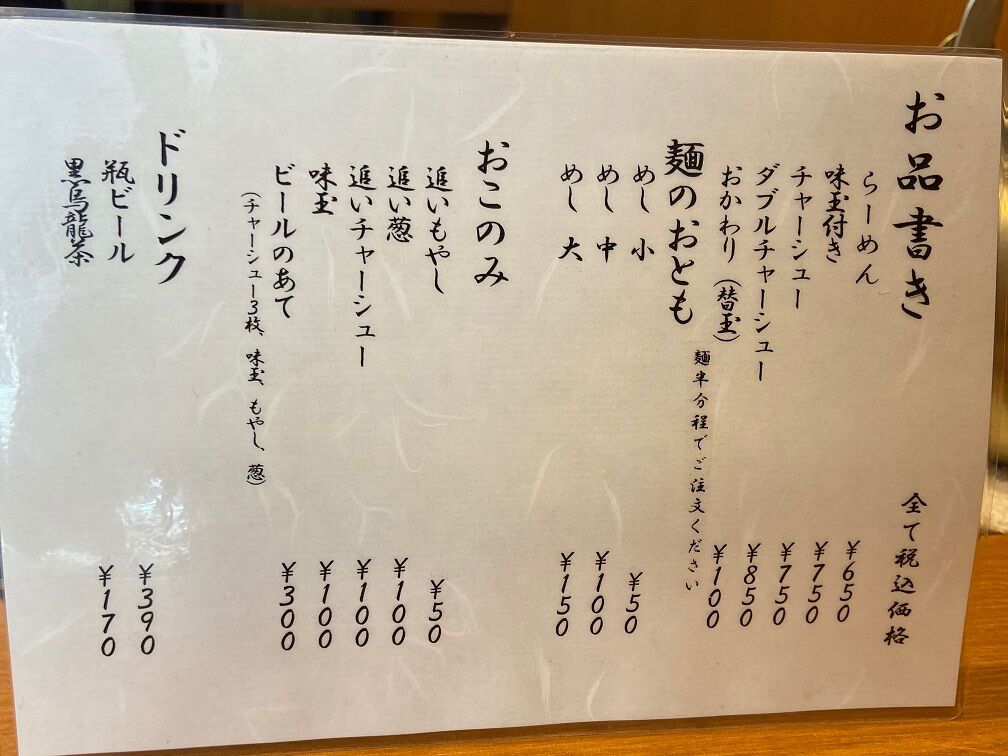 お品書き 全て税込価格
らーめん ¥650
味玉付き ¥750
チャーシュー ¥750
ダブルチャーシュー ¥850
おかわり(替玉) ¥100
麺半分程でご注文ください
麺のおとも
めし 小 ¥50
めし 中 ¥100
めし 大 ¥150
おこのみ
追いもやし ¥50
追い葱 ¥100
追いチャーシュー ¥100
味玉 ¥100
ビールのあて ¥300
(チャーシュー3枚、味玉、もやし、葱)
ドリンク
瓶ビール ¥390
黒烏龍茶 ¥170